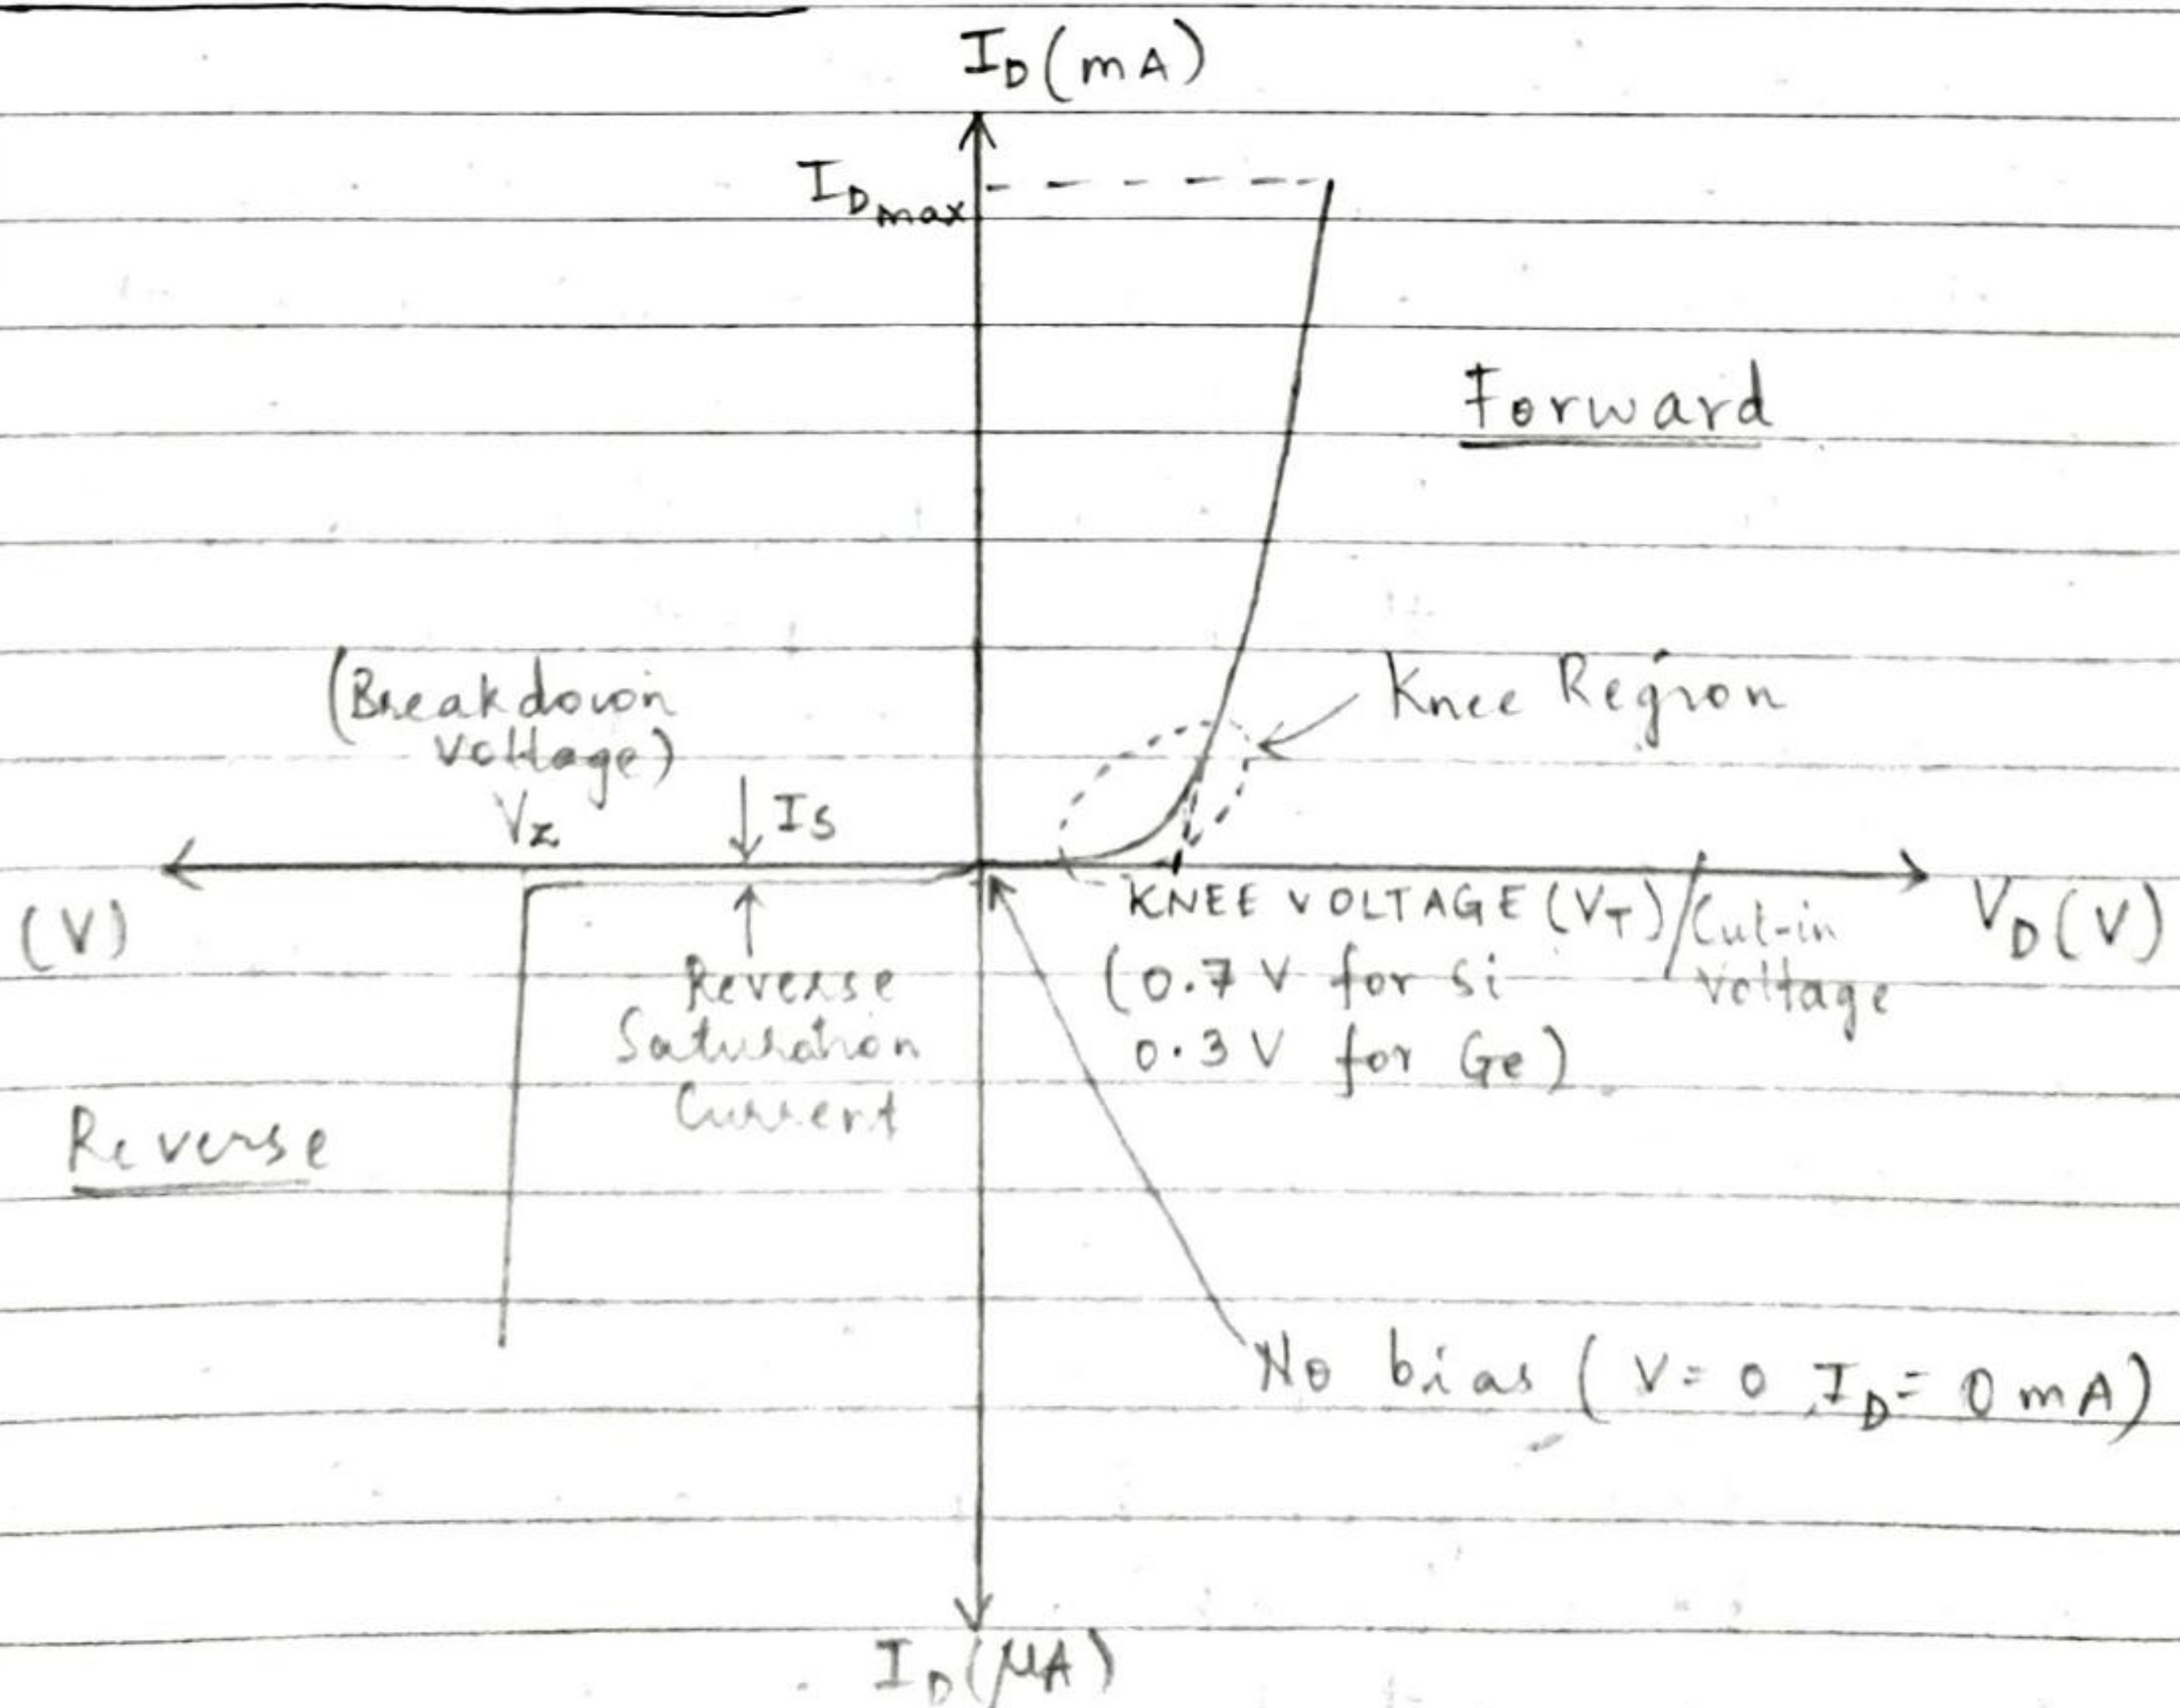 I_D (mA)
I_Dmax
Forward
Knee Region
(Breakdown
Voltage)
V_Z
I_S
(V)
V_D (V)
KNEE VOLTAGE (V_T) / Cut-in
Voltage
(0.7 V for Si
0.3 V for Ge)
Reverse
Saturation
Current
Reverse
No bias (V = 0, I_D = 0 mA)
I_D (μA)